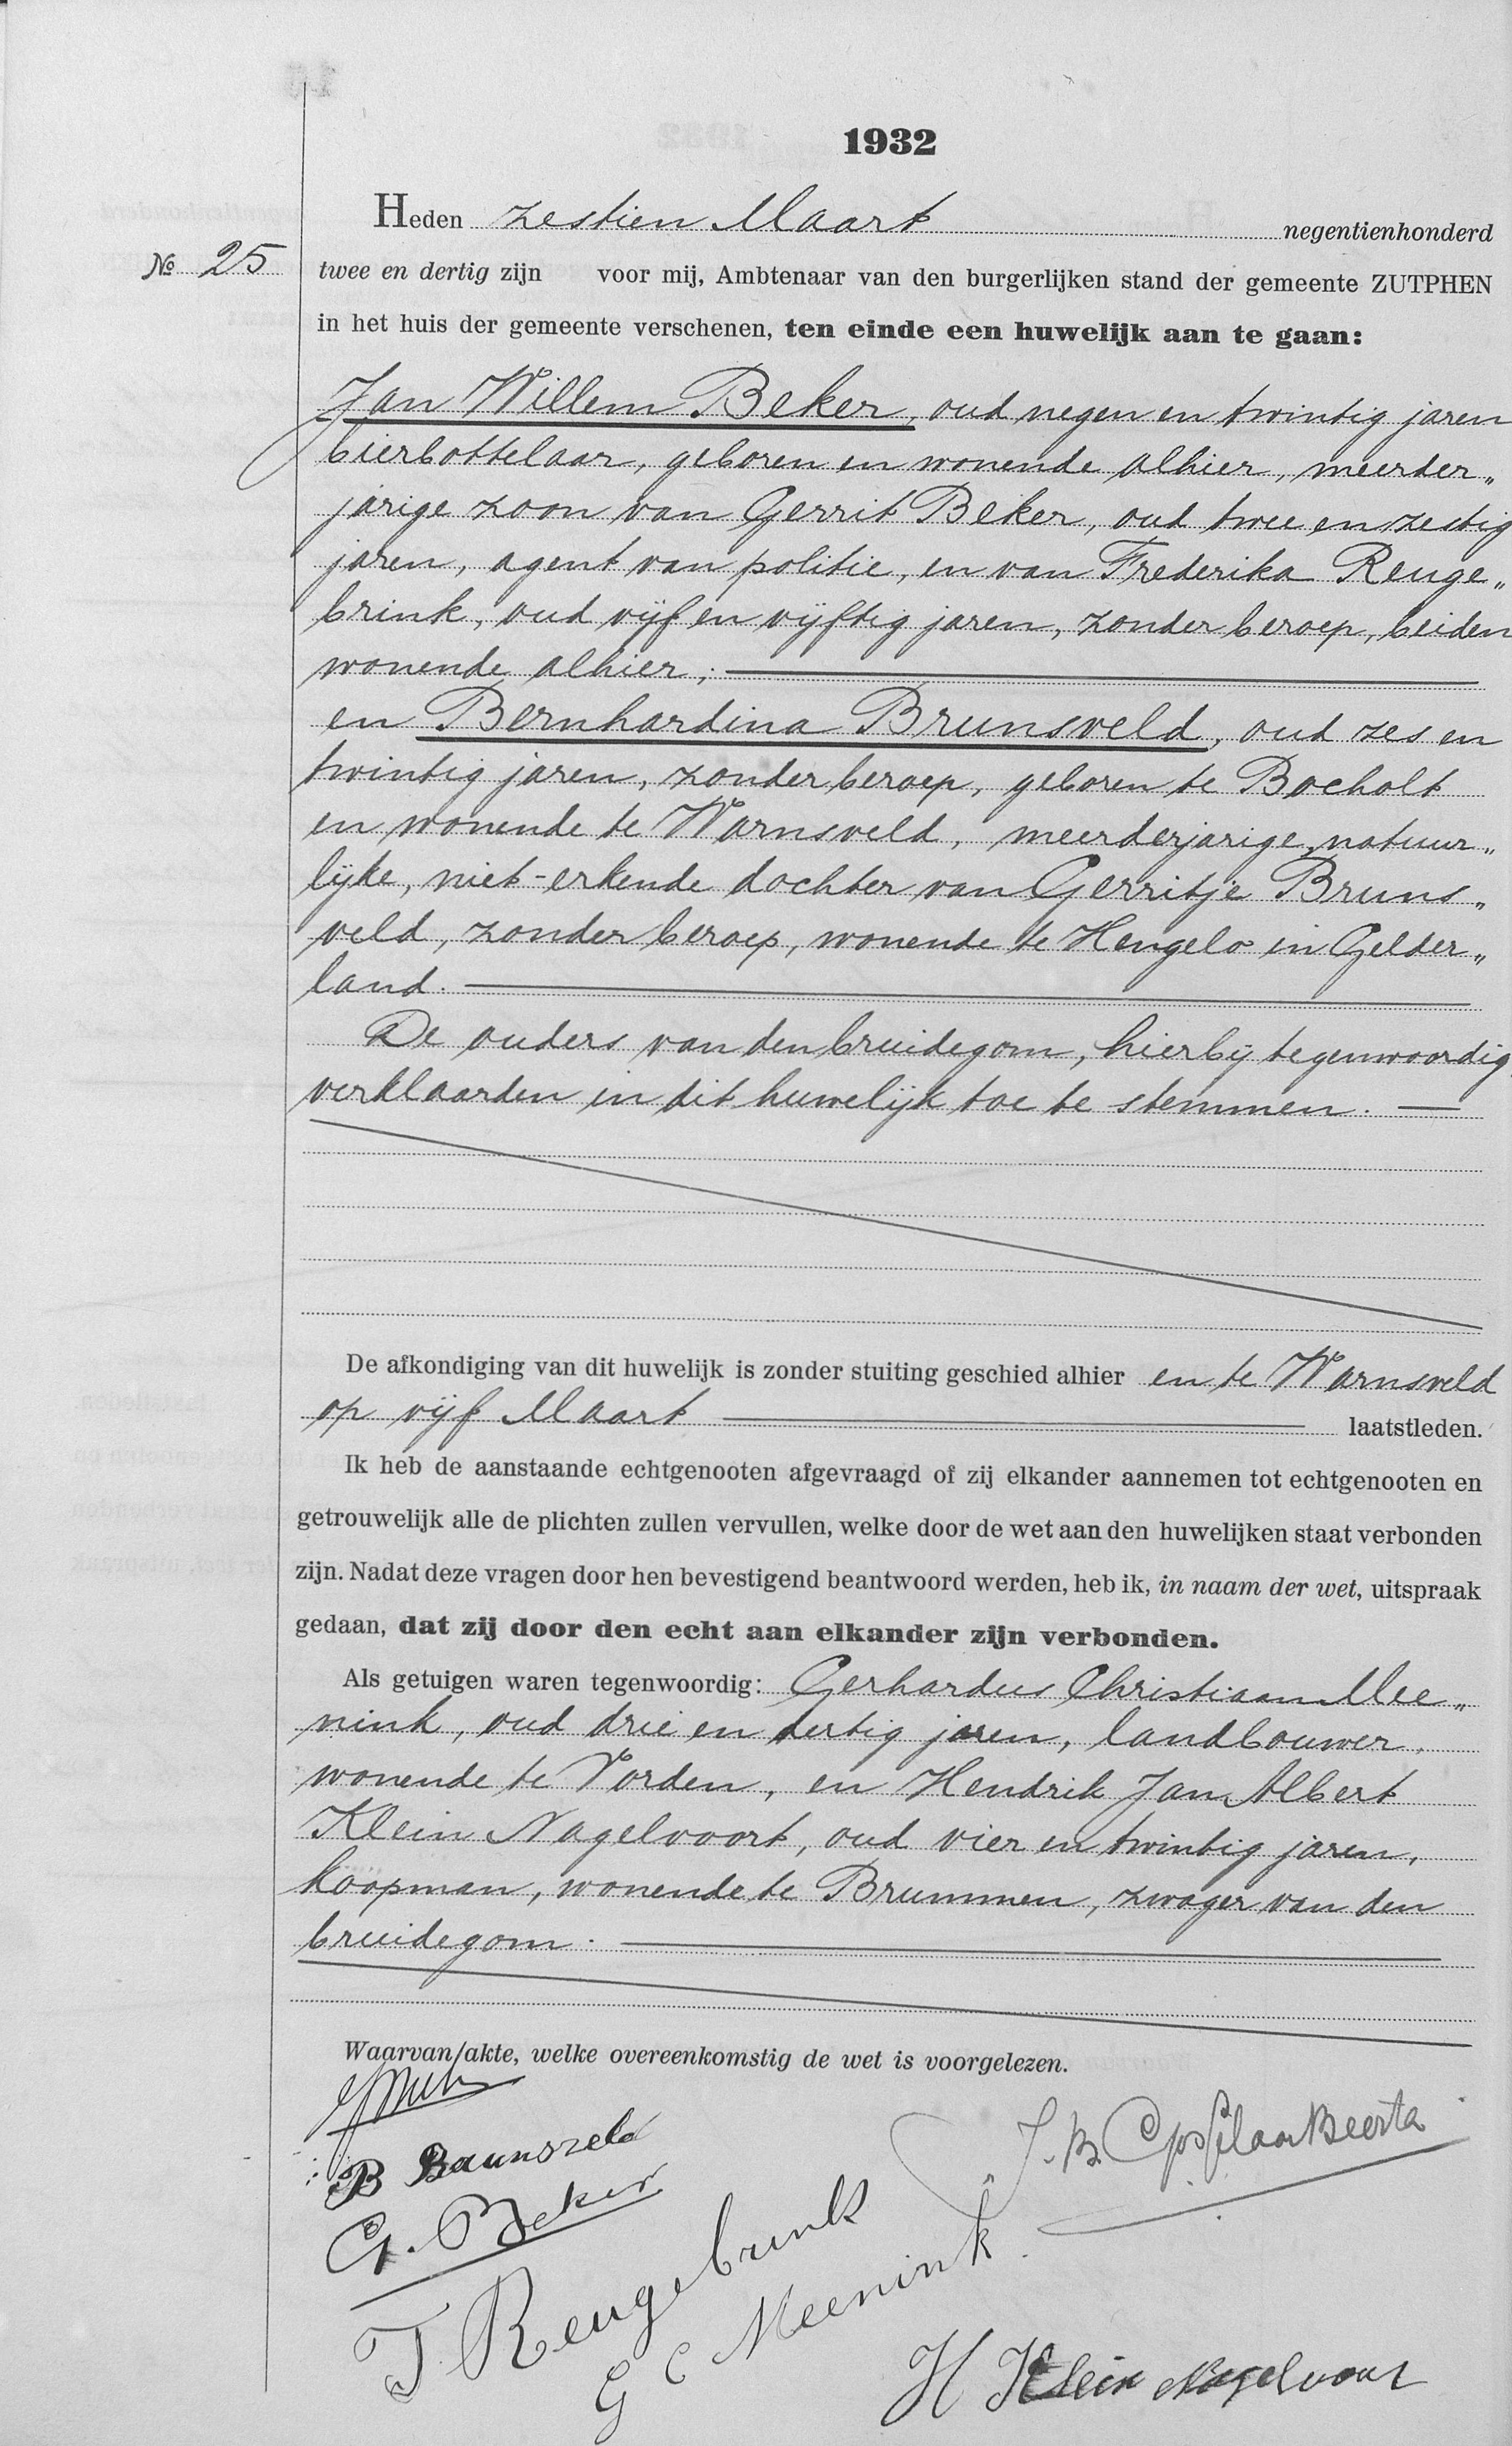 1932
Heden zestien Maart negentienhonderd
№ 25
twee en dertig zijn voor mij, Ambtenaar van den burgerlijken stand der gemeente ZUTPHEN
in het huis der gemeente verschenen, ten einde een huwelijk aan te gaan:
Jan Willem Beker, oud negen en twintig jaren
bierbottelaar, geboren en wonende alhier, meerder„
jarige zoon van Gerrit Beker, oud twee en zestig
jaren, agent van politie, en van Frederika Reuge„
brink, oud vijf en vijftig jaren, zonder beroep, beiden
wonende alhier;
en Bernhardina Brunsveld, oud zes en
twintig jaren, zonder beroep, geboren te Bocholt
en wonende te Warnsveld, meerderjarige, natuur„
lijke, niet-erkende dochter van Gerritje Bruns„
veld, zonder beroep, wonende te Hengelo in Gelder„
land.
De ouders van den bruidegom, hierbij tegenwoordig
verklaarden in dit huwelijk toe te stemmen.
De afkondiging van dit huwelijk is zonder stuiting geschied alhier en te Warnsveld
op vijf Maart laatstleden.
Ik heb de aanstaande echtgenooten afgevraagd of zij elkander aannemen tot echtgenooten en
getrouwelijk alle de plichten zullen vervullen, welke door de wet aan den huwelijken staat verbonden
zijn. Nadat deze vragen door hen bevestigend beantwoord werden, heb ik, in naam der wet, uitspraak
gedaan, dat zij door den echt aan elkander zijn verbonden.
Als getuigen waren tegenwoordig: Gerhardus Christiaan Mee„
nink, oud drie en dertig jaren, landbouwer,
wonende te Vorden, en Hendrik Jan Albert
Klein Nagelvoort, oud vier en twintig jaren,
koopman, wonende te Brummen, zwager van den
bruidegom.
Waarvan akte, welke overeenkomstig de wet is voorgelezen.
B Brunsveld
G. Beker
F Reugebrink
G C Meenink
H Klein Nagelvoort